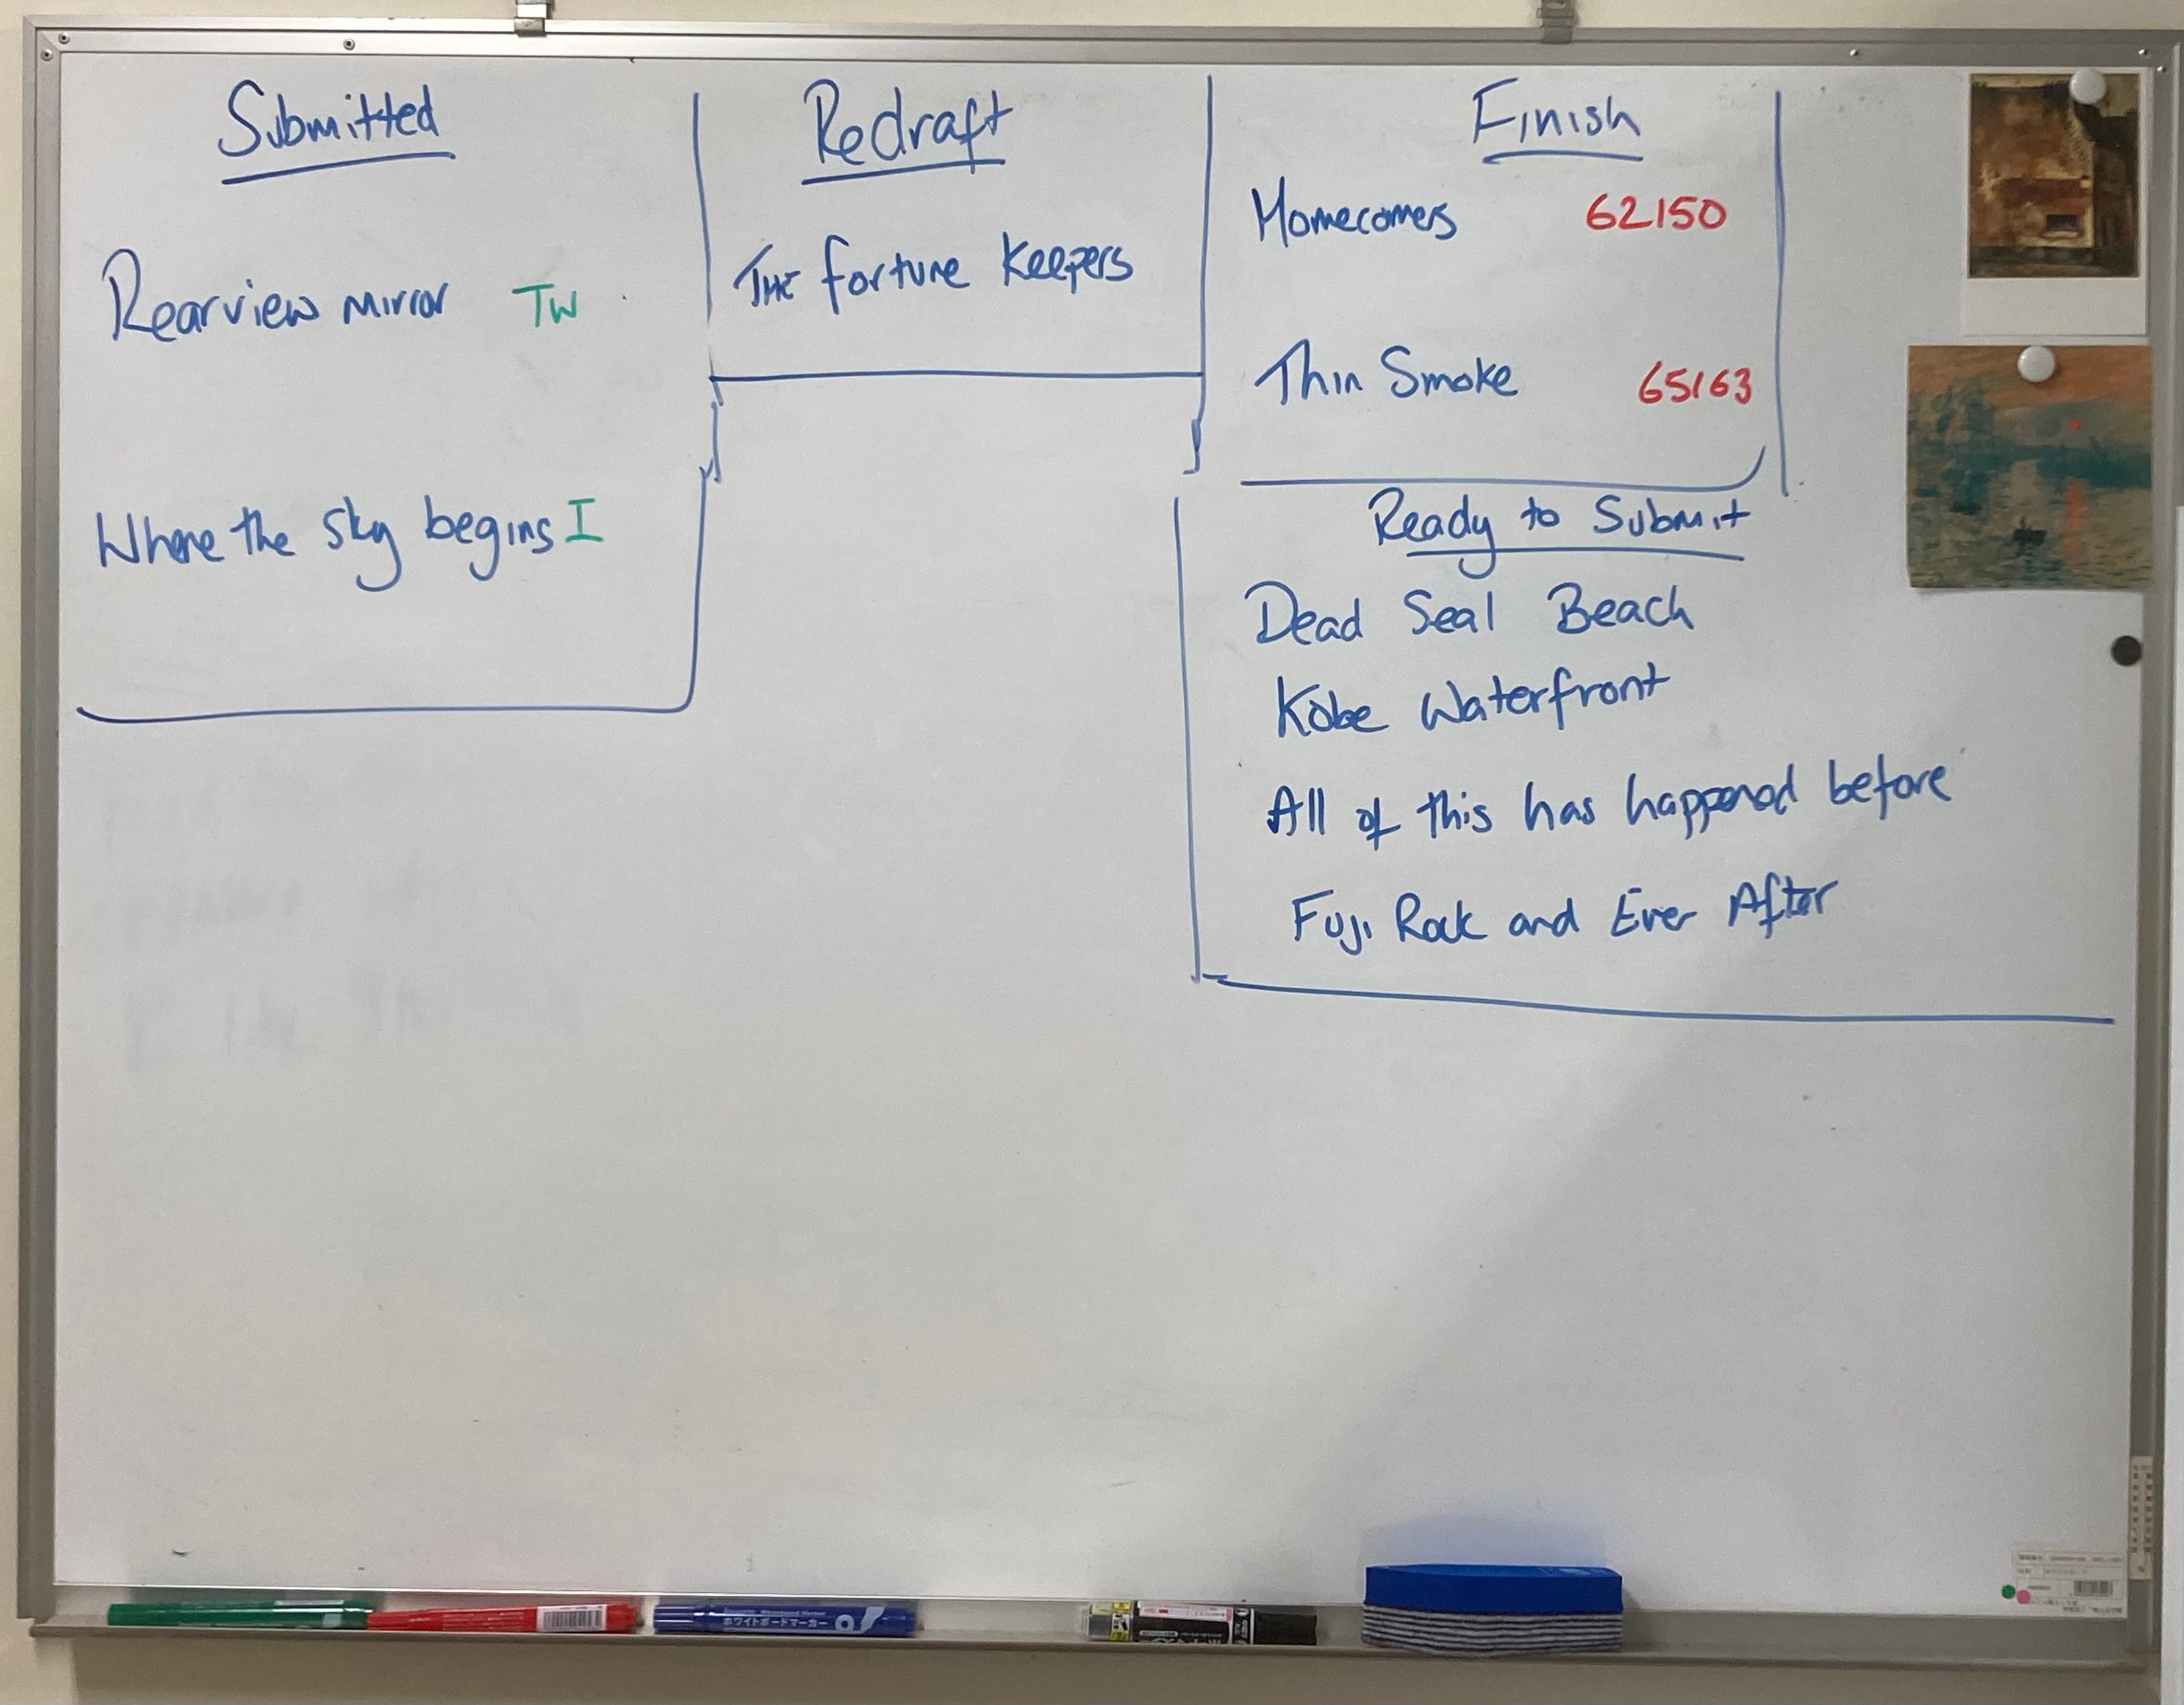 Submitted
Rearview mirror TW
Where the sky begins I
Redraft
THE fortune keepers
Finish
Homecomers 62150
Thin Smoke 65163
Ready to Submit
Dead Seal Beach
Kobe Waterfront
All of this has happened before
Fuji Rock and Ever After
ホワイトボードマーカー